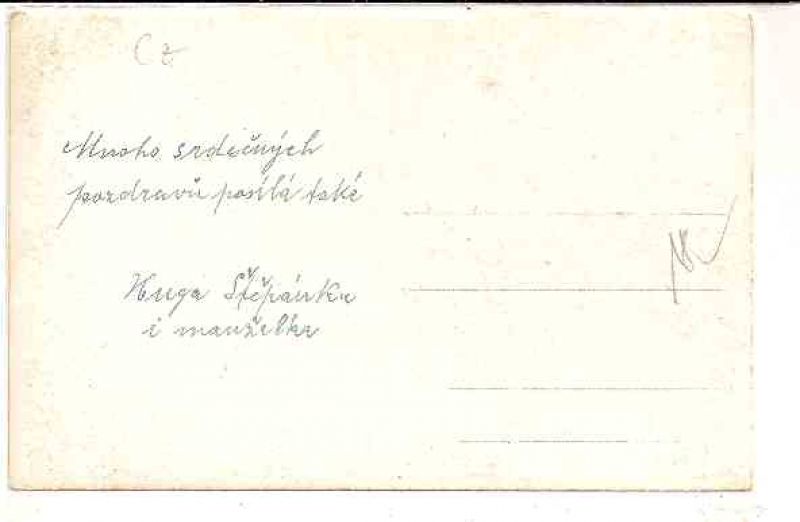 Cz
Mnoho srdečných
pozdravů posílá také
Huga Štěpánka
i manželka